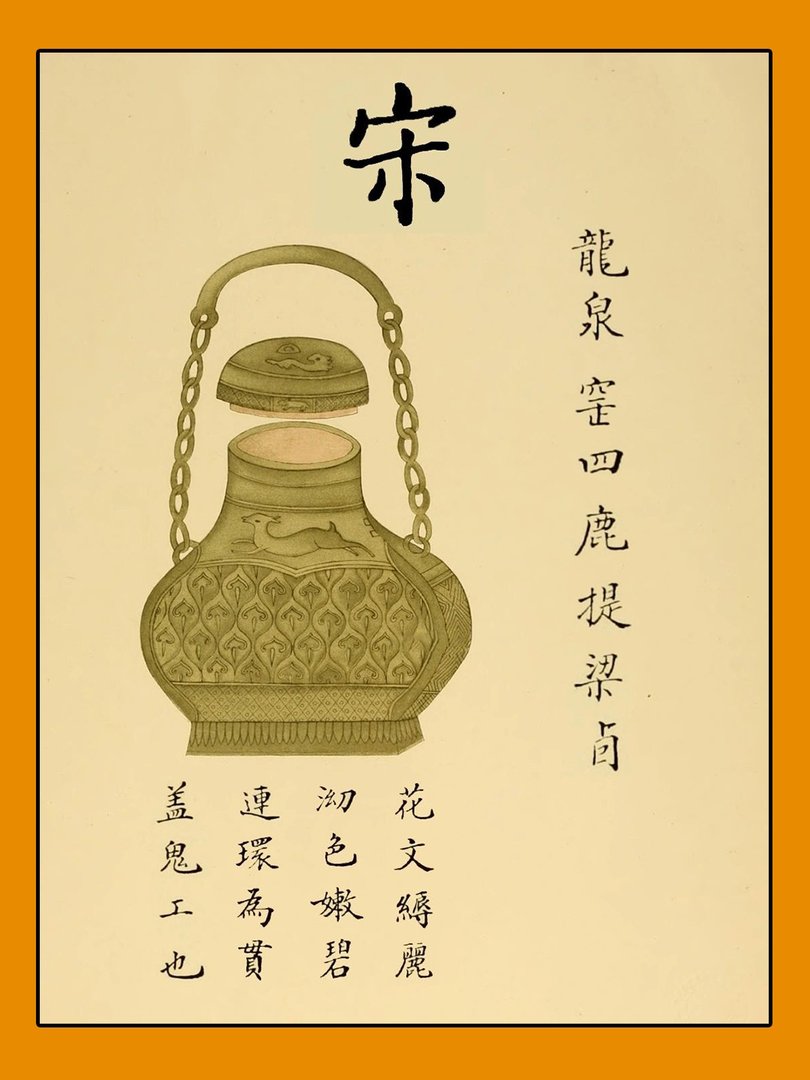 宋
龍泉窑四鹿提梁卣
花文縟麗
泑色嫩碧
連環為貫
盖鬼工也